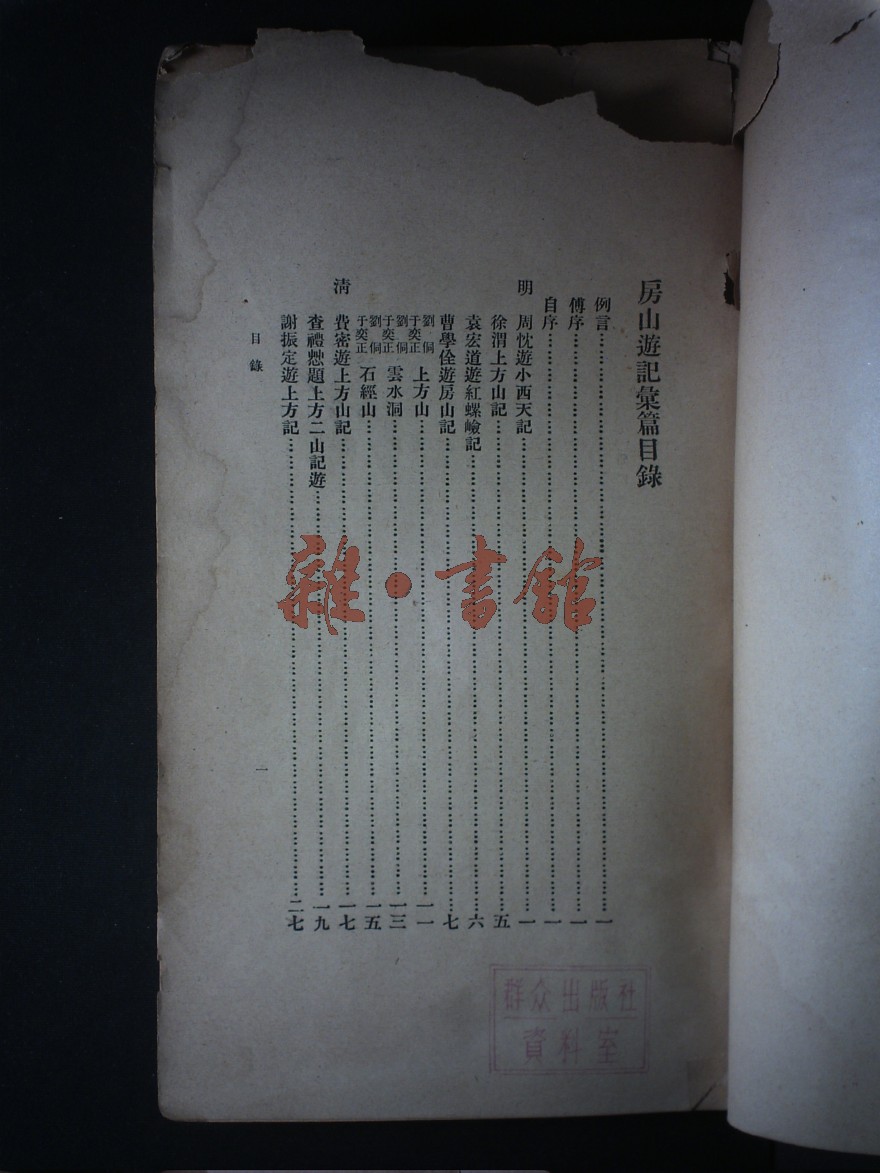 房山遊記彙篇目錄
例言……一
傅序……一
自序……一
明
周忱遊小西天記……一
徐渭上方山記……五
袁宏道遊紅螺嶮記……六
曹學佺遊房山記……七
劉侗 于奕正 上方山……一一
劉侗 于奕正 雲水洞……一三
劉侗 于奕正 石經山……一五
清
費密遊上方山記……一七
查禮懯題上方二山記遊……一九
謝振定遊上方記……二七
目錄
一
雜·書館
群众出版社
資料室